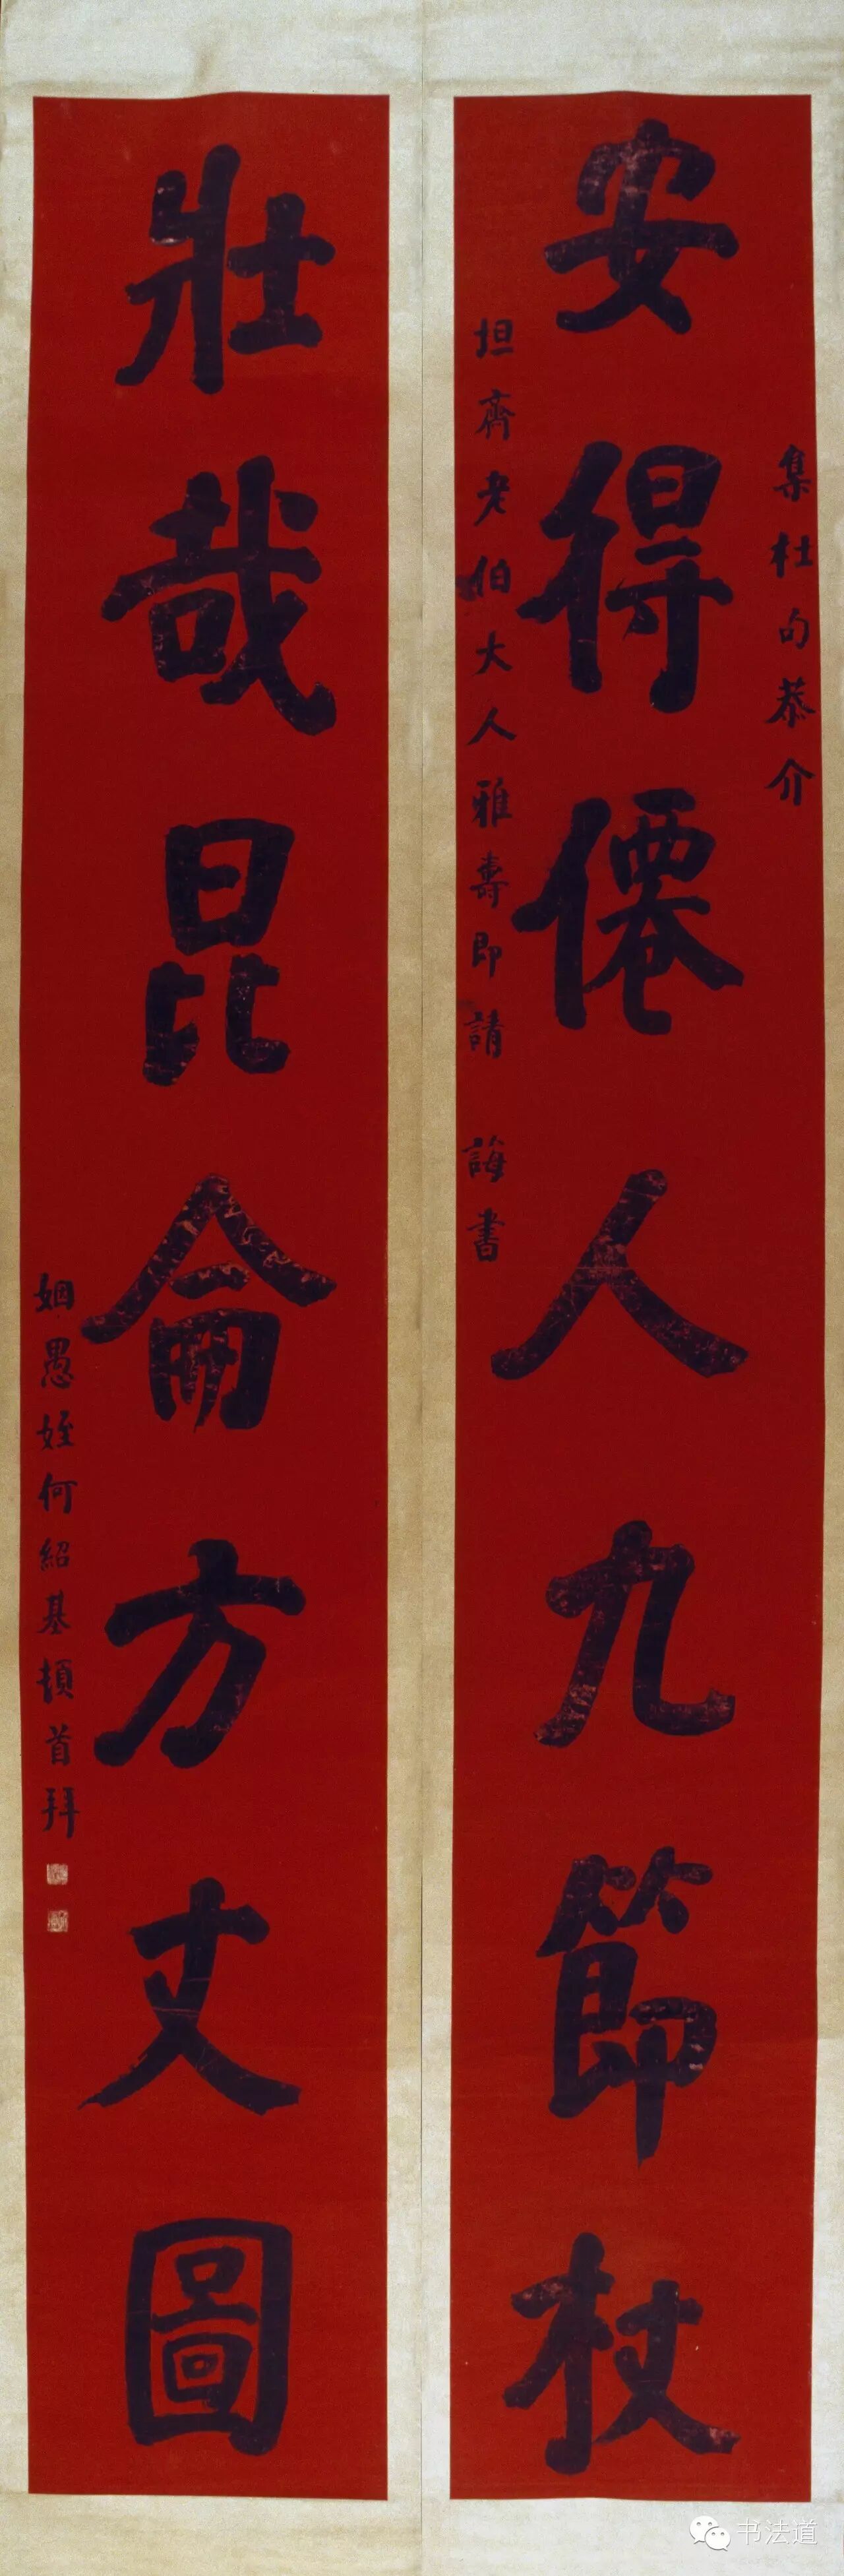 安得僊人九節杖
集杜句恭介
坦齋老伯大人雅壽即請 誨書
壯哉昆侖方丈圖
姻愚姪何紹基頓首拜
书法道